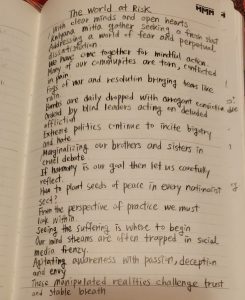 The World at Risk
With clear minds and open hearts
Kalyana mitta gather seeking a fresh start
Addressing a world of fear and perpetual
dissatisfaction
We have come together for mindful action.
Many of our communities are torn, conflicted
in pain
Fogs of war and resolution bringing tears like
rain
Bombs are daily dropped with arrogant
Ordered by blind leaders acting on deluded
affliction
Extreme politics continue to incite bigotry
and hate
Marginalizing our brothers and sisters in
cruel debate
If harmony is our goal then let us carefully
reflect
How to plant seeds of peace in every nationalist
sect?
From the perspective of practice we must
look within
Seeing the suffering is where to begin
Our mind streams are often trapped in social
media frenzy.
Agitating awareness with passion, deception
and envy
These manipulated realities challenge trust
and stable breath